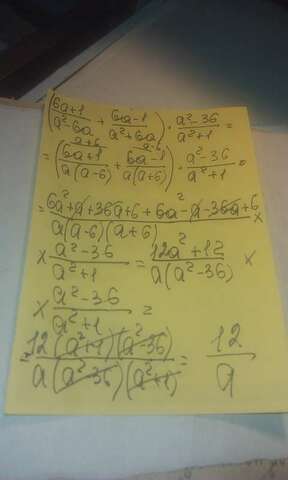 (6a+1/a²-6a + 6a-1/a²+6a) · a²-36/a²+1 =
a+6 a-6
= (6a+1/a(a-6) + 6a-1/a(a+6)) · a²-36/a²+1 =
= 6a²+a+36a+6+6a²-a-36a+6/a(a-6)(a+6) ×
× a²-36/a²+1 = 12a²+12/a(a²-36) ×
× a²-36/a²+1 =
= 12(a²+1)(a²-36)/a(a²-36)(a²+1) = 12/a